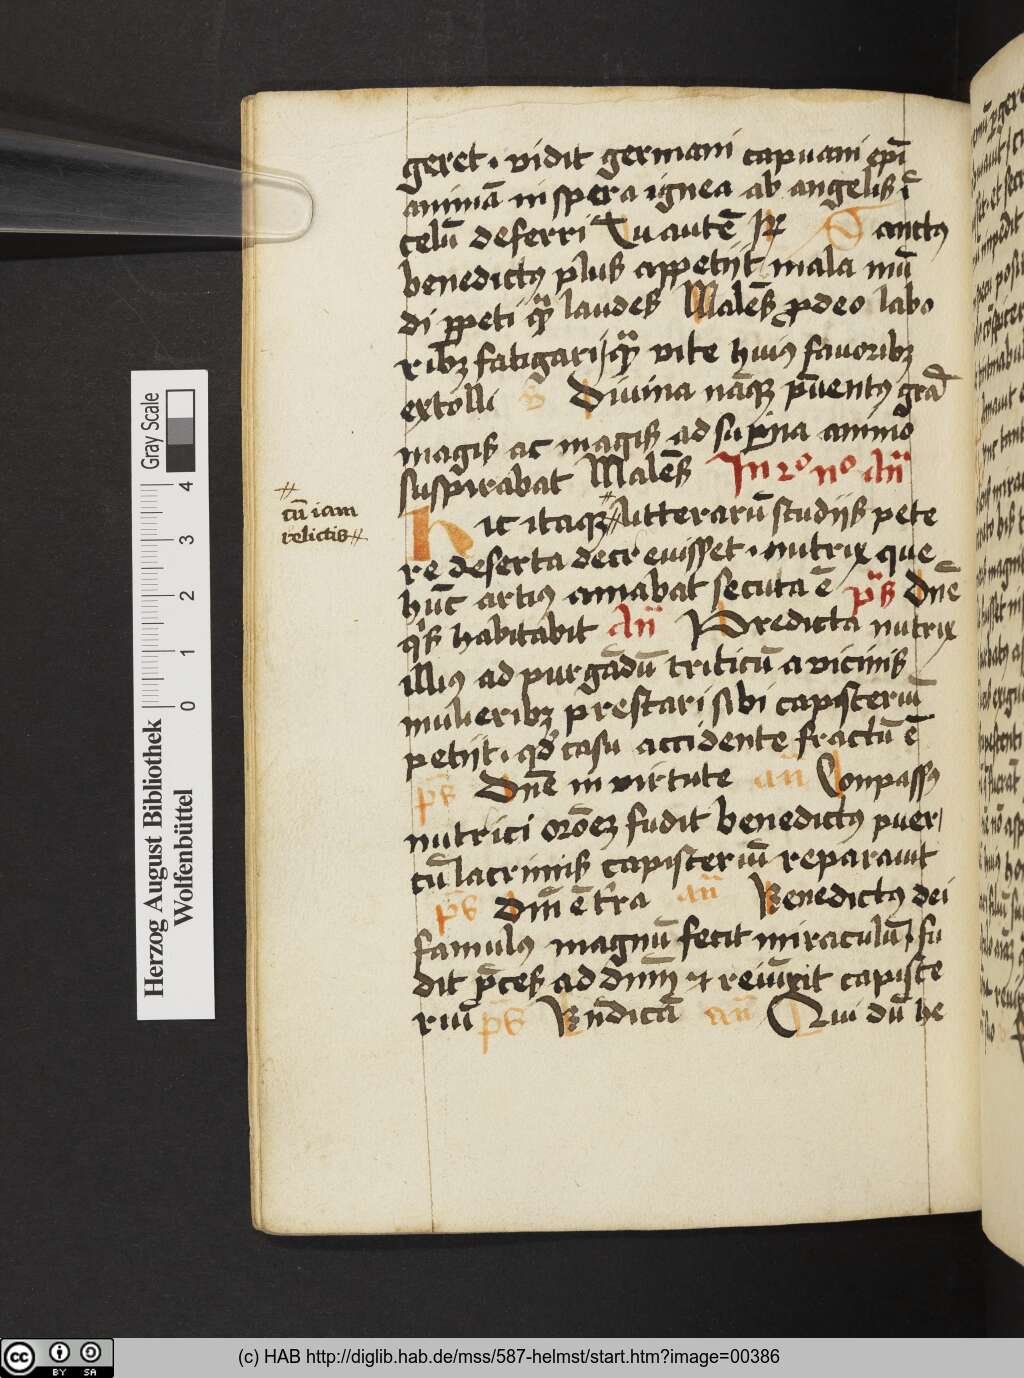 geret · vidit germani capuani ep̄i
animā in spera ignea ab angelis ī
celū deferri Tu autē ℟ Sanctꝰ
benedictꝰ plus appetijt mala mū
di ꝑpeti q̄ȝ laudes Malēs ꝓ deo labo
ribꝫ fatigari / q̄ȝ vite huiꝰ fauoribꝫ
extolli ℣ Diuina nāqꝫ p̄uentꝰ gr̄a
magis ac magis ad suꝑna animo
suspirabat Malēs In 2º nº An̄
cū iam
relictis
Hic itaqꝫ litterarū studijs pete
re deserta decreuisset · nutrix que
hūc artiꝰ amabat secuta ē p̄s Dn̄e
q̄s habitabit An̄ Predicta nutrix
illiꝰ ad purgādū triticū a vicinis
mulieribꝫ prestari sibi capisteriū
petijt · qd̓ casu accidente fractū ē
p̄s Dn̄e in virtute an̄ Conpassꝰ
nutrici orōeꝫ fudit benedictꝰ puer /
cū lacrimis capisteriū reparauit
p̄s Dn̄i ē tr̄ra an̄ Benedictꝰ dei
famulꝰ magnū fecit miraculū / fu
dit p̄ces ad dnm̄ et reiūxit capiste
riū p̄s Bn̄dicā an̄ Qui dū he
Herzog August Bibliothek
Wolfenbüttel
Gray Scale
0 1 2 3 4
(c) HAB http://diglib.hab.de/mss/587-helmst/start.htm?image=00386
cc BY SA